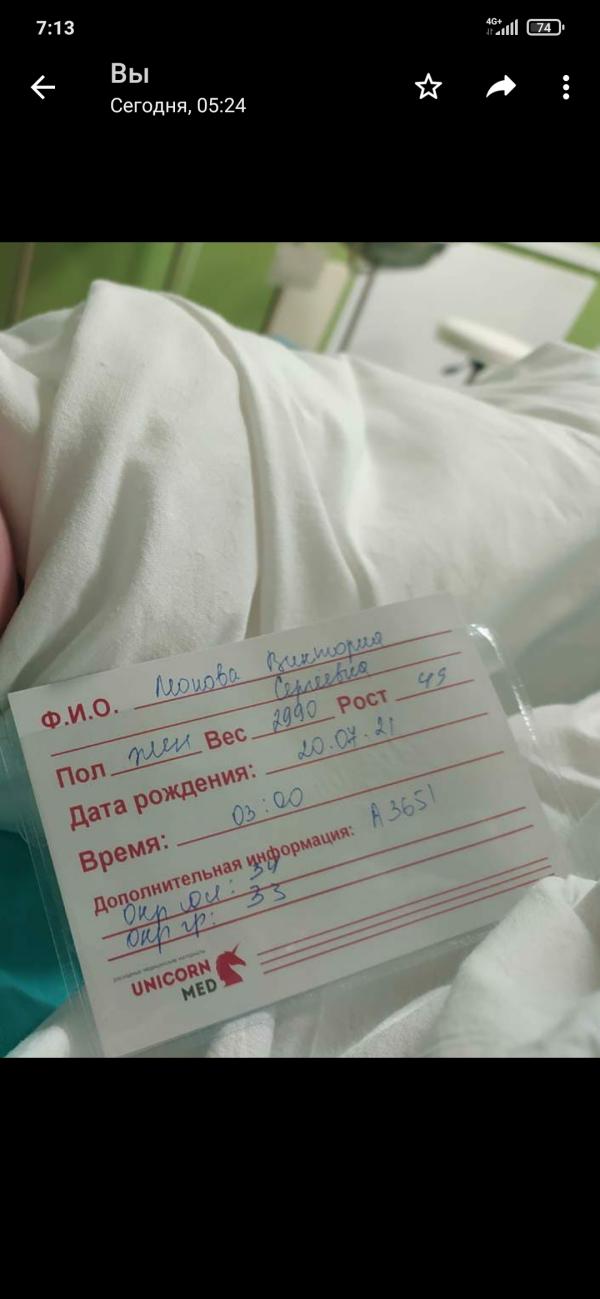 7:13
4G+ 74
Вы
Сегодня, 05:24
Ф.И.О. Виктория
Сергеевна
Пол жен Вес 2990 Рост 49
Дата рождения: 20.07.21
Время: 03:00
Дополнительная информация: А3651
Окр гол: 34
Окр гр: 33
UNICORN
MED